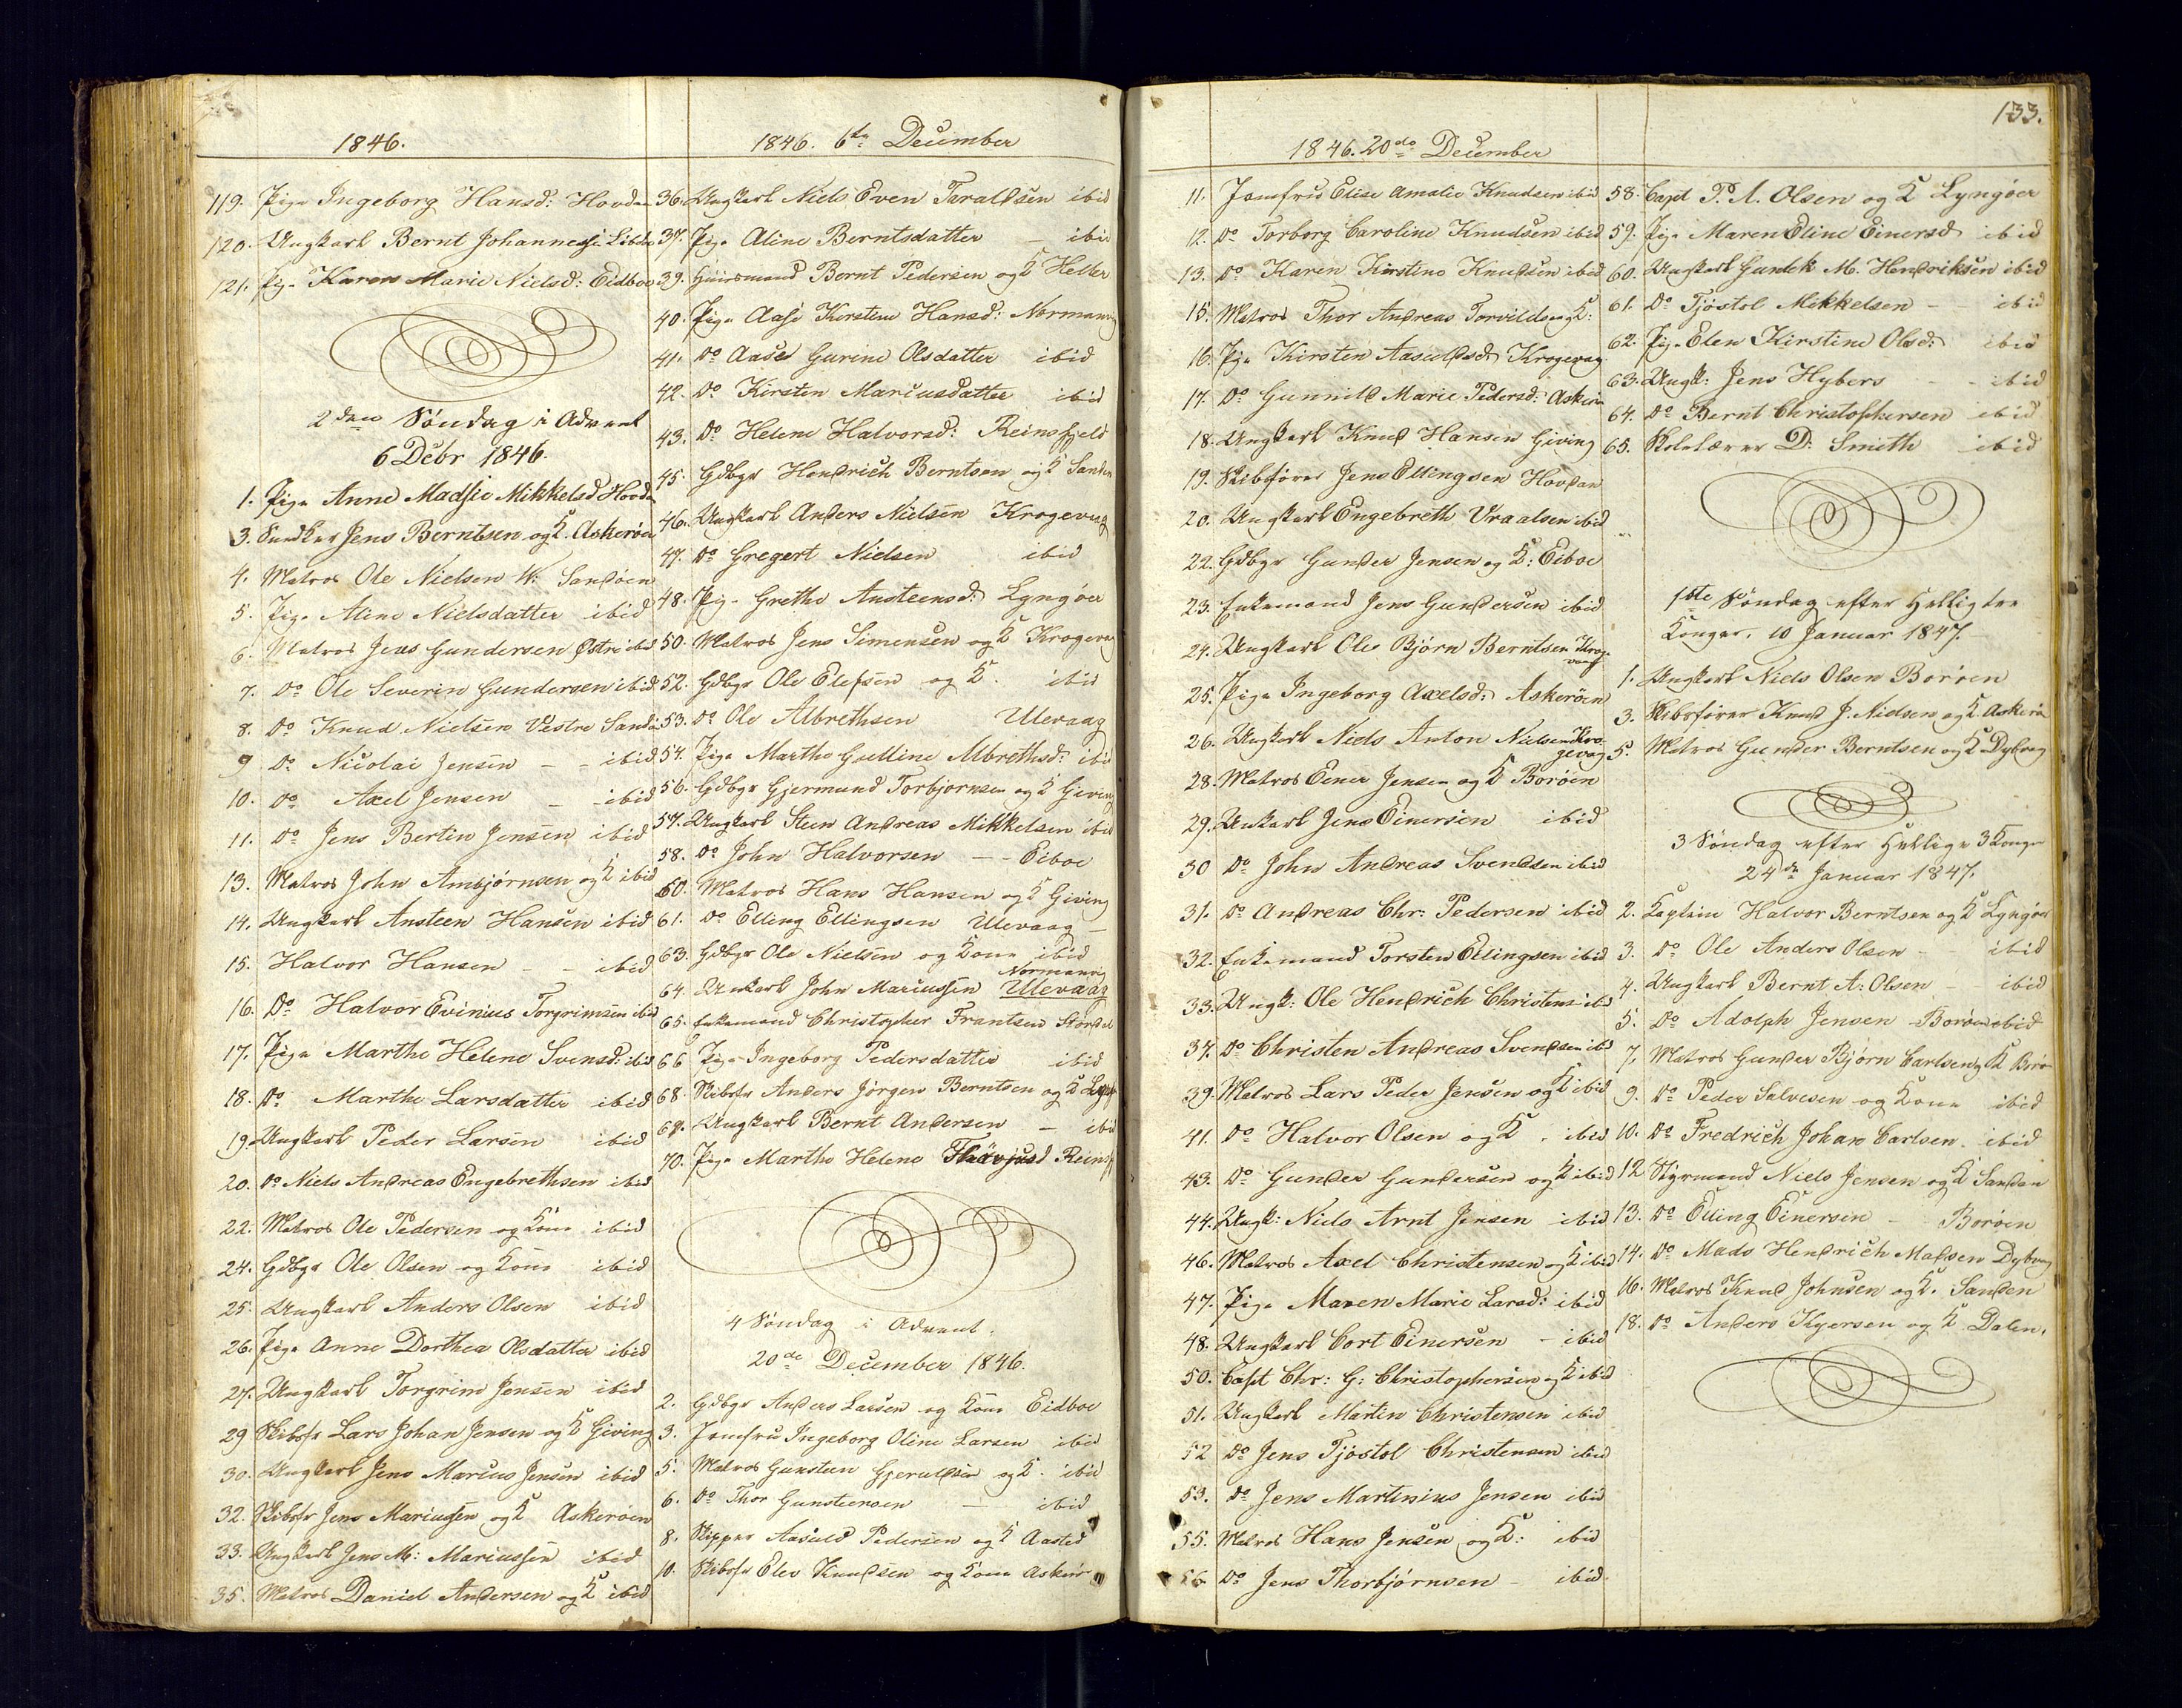 1846.
119. Pige Ingeborg Hansd: Hovden
120. Ungkarl Bernt Johannessen
121. Pige Karen Marie Nielsd: Eidboe
2den Søndag i Advent
6 Debr 1846.
1. Pige Anne Madsie Mikkelsd Hovden
3. Jens Berntsen og K. Askerøen
4. Matros Ole Nielsen W: Sandøen
5. Pige Aline Nielsdatter ibid
6. Matros Jens Gundersen Østre ibid
7. Do Ole Severin Gundersen ibid
8. Do Knud Nielsen Vestre Sandø
9 Do Nicolai Jensen - - ibid
10. Do Axel Jensen - - ibid
11. Do Jens Bertin Jensen ibid
13. Matros John Ambjørnsen og K ibid
14. Ungkarl Ansteen Hansen ibid
15. Halvor Hansen - - ibid
16. Do Halvor Evinius Torgrimsen ibid
17. Pige Marthe Helene Svensd: ibid
18. Do Marthe Larsdatter ibid
19. Ungkarl Peder Larsen ibid
20. Do Niels Andreas Engebrethsen ibid
22. Matros Ole Pedersen og Kone ibid
24. Gdbgr Ole Olsen og Kone ibid
25. Ungkarl Anders Olsen ibid
26. Pige Anne Dorthea Olsdatter ibid
27. Ungkarl Torgrim Jensen ibid
29 Skibsfr Lars Johan Jensen og K Giving
30. Ungkarl Jens Marius Jensen ibid
32. Skibsfr Jens Mariussen og K Askerøen
33. Ungkarl Jens M: Mariussen ibid
35. Matros Daniel Andersen og K ibid
1846. 6te December
36. Ungkarl Niels Even Taraldsen ibid
37. Pige Aline Berntsdatter - ibid
39. Huusmand Bernt Pedersen og K Helle
40. Pige Aase Kirstine Hansd: Normanvig
41. Do Aase Gurine Olsdatter ibid
42. Do Kirsten Mariusdatter ibid
43. Do Helene Halvorsd: Reinsfjeld
45. Gdbgr Hendrich Berntsen og K Sanden
46. Ungkarl Anders Nielsen Krogevaag
47. Do Gregert Nielsen ibid
48. Pige Grethe Ansteensd: Lyngøer
50. Matros Jens Simensen og K Krogevaag
52. Gdbgr Ole Elefsen og K. ibid
53. Do Ole Albrethsen Ulevaag
54. Pige Marthe Gulline Albrethsd: ibid
56. Gdbgr Gjermund Torbjørnsen og K Giving
57. Ungkarl Steen Andreas Mikkelsen ibid
58. Do John Halvorsen - - Eiboe
60. Matros Hans Hansen og K Giving
61. Do Elling Ellingsen Ulevaag -
63. Gdbgr Ole Nielsen og Kone ibid
Normanvig
64. Unkarl John Mariussen Ulevaag
65. Enkemand Christopher Frantsen
66 Pige Ingeborg Pedersdatter ibid
68. Skibsfr Anders Jørgen Berntsen og K Lyngør
69. Ungkarl Bernt Andersen - ibid
70. Pige Marthe Helene Reinsfj
4 Søndag i Advent.
20de December 1846.
2. Gdbgr Anders Larsen og Kone Eidboe
3. Jomfru Ingeborg Oline Larsen ibid
5. Matros Gunsteen Gjeruldsen og K. ibid
6. Do Thor Gunsteensen - ibid
8. Skipper Aasuld Pedersen og K Aasted
10. Skibsfr Elev Knudsen og Kone Askerø
133.
1846. 20de December
11. Jomfru Elise Amalie Knudsen ibid
12. Do Torborg Caroline Knudsen ibid
13. Do Karen Kirstine Knudsen ibid
15. Matros Thor Andreas Torvildsen og K:
16. Pige Kirsten Aasuldsd: Krogevaag
17. Do Gunnild Marie Pedersd: Askerø
18. Ungkarl Knud Hansen Giving
19. Skibfører Jens Ellingsen Hovdan
20. Ungkarl Engebreth Vraalsen ibid
22. Gdbgr Gunder Jensen og K: Eiboe
23. Enkemand Jens Gundersen ibid
24. Ungkarl Ole Bjørn Berntsen Krogevaag
25. Pige Ingeborg Axelsd: Askerøen
26. Ungkarl Niels Anton Nielsen Krogevaag
28. Matros Einer Jensen og K Borøen
29. Unkarl Jens Einersen ibid
30 Do John Andreas Svendsen ibid
31. Do Andreas Chr: Pedersen ibid
32. Enkemand Torsten Ellingsen ibid
33. Ungk: Ole Hendrich Christens: ibid
37. Do Christen Andreas Svendsen ibid
39. Matros Lars Peder Jensen og K ibid
41. Do Halvor Olsen og K. ibid
43. Do Gunder Gundersen og K ibid
44. Ungk: Niels Arnt Jensen ibid
46. Matros Axel Christensen og K ibid
47. Pige Maren Marie Larsd: ibid
48. Ungkarl Cort Einersen - ibid
50. Capt Chr: G: Christophersen og K ibid
51. Ungkarl Martin Christensen ibid
52 Do Jens Tjøstol Christensen ibid
53. Do Jens Martinius Jensen ibid
55. Matros Hans Jensen og K: ibid
56 Do Jens Thorbjørnsen - ibid.
58. Capt P. A. Olsen og K Lyngøer
59. Pige Maren Eline Einersd ibid
60. Ungkarl Gunlek M. Hendriksen ibid
61. Do Tjøstol Mikkelsen - ibid
62. Pige Elen Kirstine Olsd: ibid
63. Ungk: Jens Hybers - - ibid
64. Do Bernt Christophersen ibid
65. Skolelærer D: Smith ibid
1ste Søndag efter Hellig tre
Konger. 10 Januar 1847.
1. Ungkarl Niels Olsen Borøen
3. Skibsfører Knud J. Nielsen og K. Askerø
5. Matros Gunder Berntsen og K Dybvag
3 Søndag efter Hellige 3 Konger
24de Januar 1847.
2. Kaptein Halvor Berntsen og K Lyngøer
3. Do Ole Anders Olsen - ibid
4. Ungkarl Bernt A: Olsen - ibid
5. Do Adolph Jensen Borøen ibid
7. Matros Gunder Bjørn Carlsen og K Borø
9. Do Peder Salvesen og Kone ibid
10. Do Fredrich Johan Carlsen. ibid
12 Styrmand Niels Jensen og K Sanden
13. Do Elling Einersen - Borøen
14. Do Mads Hendrich Madsen Dybvag
16. Matros Knud Johnsen og K. Sanden
18. Do Anders Kyersen og K Dalen.